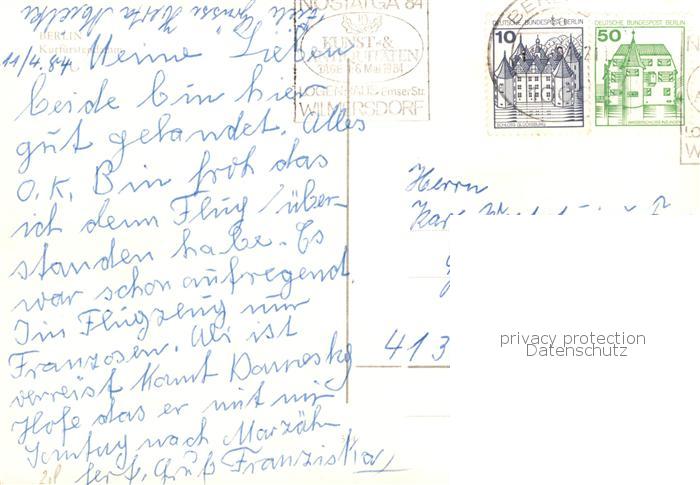 BERLIN
Kurfürstendamm
11/4.84 Meine Lieben
beide bin hier
gut gelandet. Alles
O.K. Bin froh das
ich denn Flug über-
standen habe. Es
war schon aufregend.
Im Flugzeug nur
Franzosen. Uli ist
verreist kommt Donnerstag
Hoffe das er mit mir
Sonntag nach
fert. Gruß Franziska
Grüsse Herta
NOSTALGA 84
KUNST- &
ANTIQUITÄTEN
TAGE 1-6 Mai 1984
LOGENHAUS Emser Str.
WILMERSDORF
BERLIN
10
DEUTSCHE BUNDESPOST BERLIN
SCHLOSS GLÜCKSBURG
DEUTSCHE BUNDESPOST BERLIN
50
WASSERSCHLOSS INZLINGEN
Herrn
Karl
413
privacy protection
Datenschutz